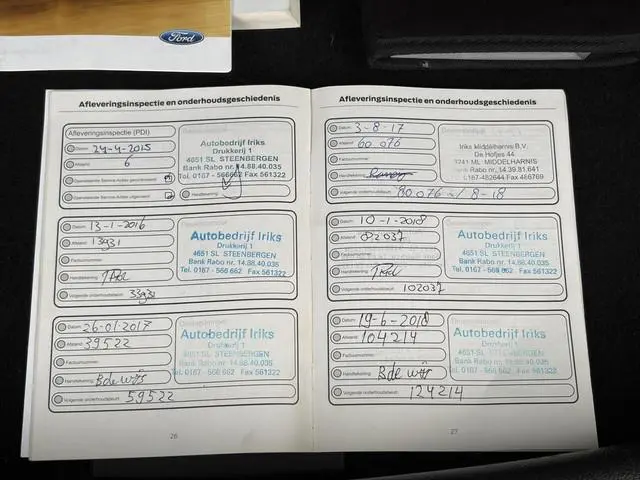 Ford
Afleveringsinspectie en onderhoudsgeschiedenis
Afleveringsinspectie (PDI)
Datum: 24-4-2015
Afstand: 6
Openstaande Service-Acties gecontroleerd
Openstaande Service-Acties uitgevoerd
Handtekening:
Autobedrijf Iriks
Drukkerij 1
4651 SL STEENBERGEN
Bank Rabo nr. 14.88.40.035
Tel. 0167 - 566662 Fax 561322
Datum: 13-1-2016
Afstand: 13931
Factuurnummer:
Handtekening:
Volgende onderhoudsbeurt: 33931
Autobedrijf Iriks
Drukkerij 1
4651 SL STEENBERGEN
Bank Rabo nr. 14.88.40.035
Tel. 0167 - 566 662 Fax 561322
Datum: 26-01-2017
Afstand: 39522
Factuurnummer:
Handtekening: B de wijs
Volgende onderhoudsbeurt: 59522
Autobedrijf Iriks
Drukkerij 1
4651 SL STEENBERGEN
Bank Rabo nr. 14.88.40.035
Tel. 0167 - 566 662 Fax 561322
26
Afleveringsinspectie en onderhoudsgeschiedenis
Datum: 3-8-17
Afstand: 60.076
Factuurnummer:
Handtekening:
Volgende onderhoudsbeurt: 80.076 8-18
Iriks Middelharnis B.V.
De Hofjes 44
3241 ML MIDDELHARNIS
Bank Rabo nr. 14.39.81.641
0187-482644 Fax 486769
Datum: 10-1-2018
Afstand: 82037
Factuurnummer:
Handtekening:
Volgende onderhoudsbeurt: 102037
Autobedrijf Iriks
Drukkerij 1
4651 SL STEENBERGEN
Bank Rabo nr. 14.88.40.035
Tel. 0167 - 566 662 Fax 561322
Datum: 19-6-2018
Afstand: 104214
Factuurnummer:
Handtekening: B de wijs
Volgende onderhoudsbeurt: 124214
Autobedrijf Iriks
Drukkerij 1
4651 SL STEENBERGEN
Bank Rabo nr. 14.88.40.035
Tel. 0167 - 566 662 Fax 561322
27